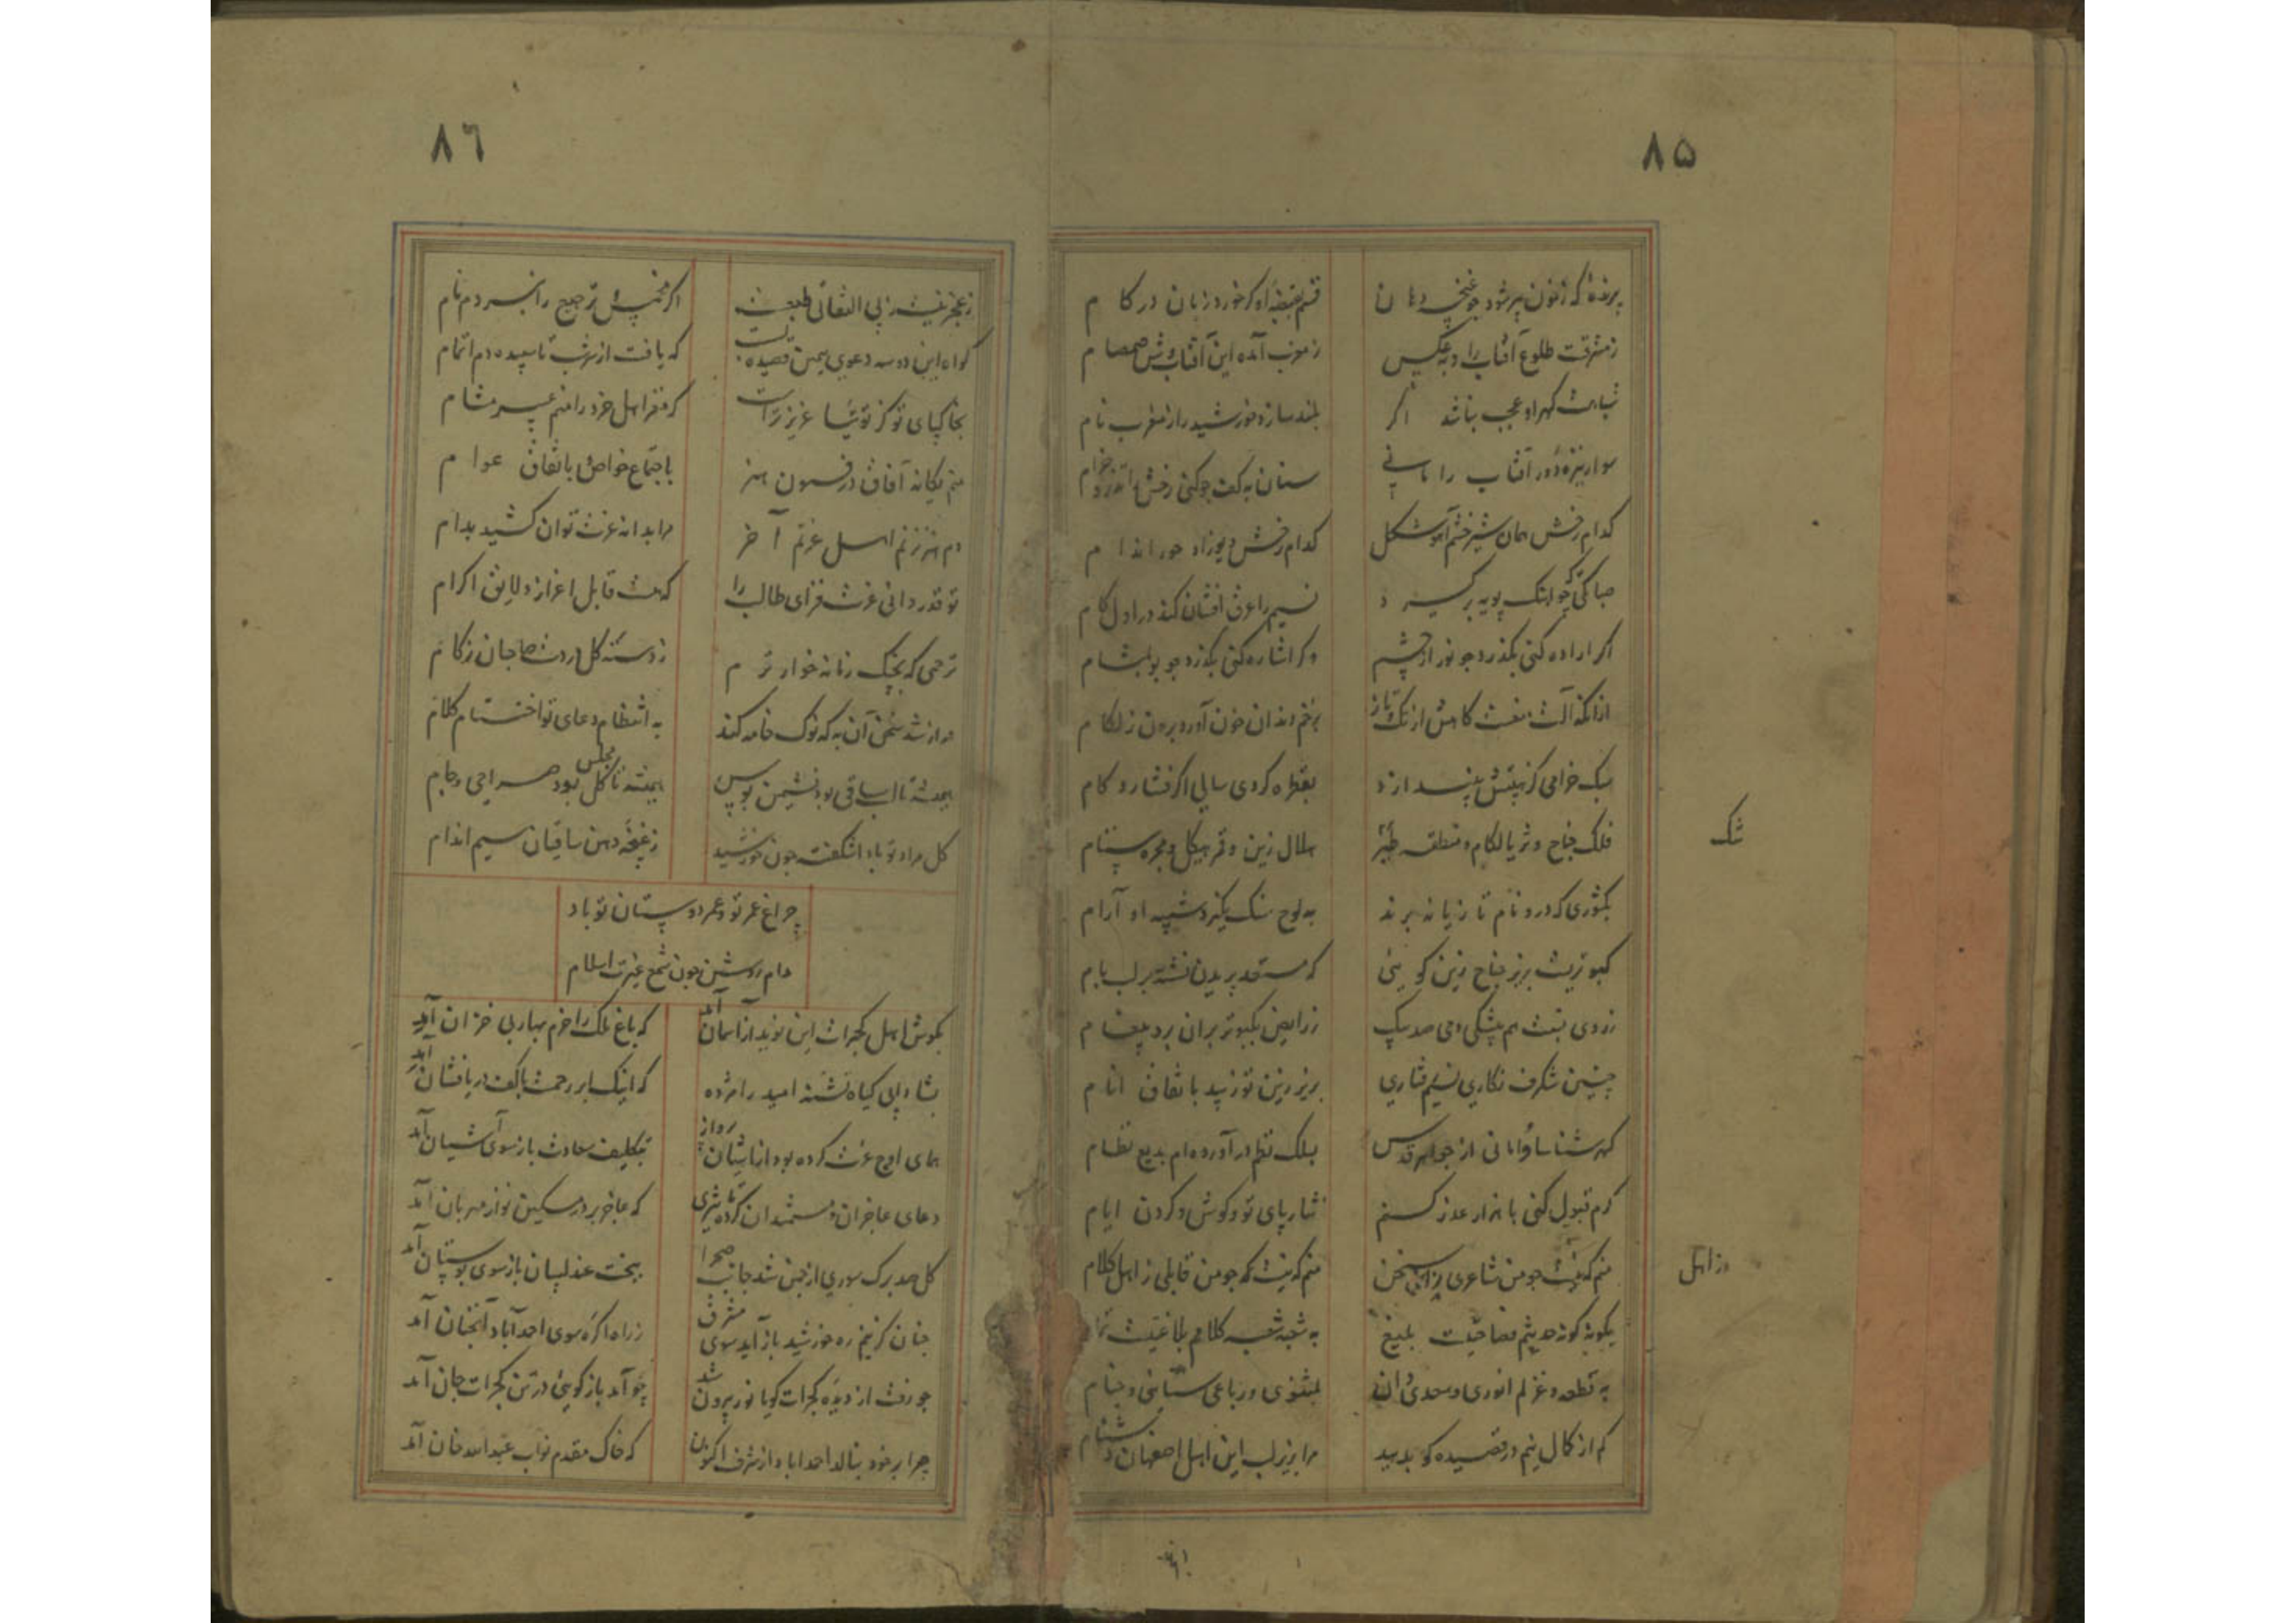 ۸۵
برنده که ز خون پر شود چو غنچه دهان
قسم بقبضه او کر خورد زبان در کام
ز مشرقست طلوع آفتاب را و بعکس
ز مغرب آمده این آفتاب وش صمصام
شباهت کهر او عجب نباشد اکر
بلند سازد خورشید را ز مغرب نام
سوار نیزه ور آفتاب را مانی
سنان بکف چو کنی رخش
کدام رخش همان شیر خشم آهو شکل
کدام رخش دیوزاد حور اندام
صبا تکی که چو آهنک پویه بر کیرد
نسیم را عرق افشان کند در اول کام
اکر اراده کنی بکذرد چو نور از چشم
وکر اشاره کنی بکذرد چو بو بمشام
بزخم دندان خون آورد برون ز لکام
سبک خرامی کز نقش پی نیندازد
بقطره کر دی سالی اکر فشارد کام
فلک جناح و ثریا لکام و منطقه
هلال زین و قمر هیکل و مجره ستام
شک
بکشوری که درو نام تازیانه برند
به لوح سنک نکیرد شبیه او آرام
کبوتریست بزیر جناح زین کویی
که مستعد پریدن نشسته بر لب بام
چنین شکرف نکاری نسیم رفتاری
بزیر زین تو زیبد باتفاق انام
کهرشناسا وانانی از جواهر قدس
بسلک نظم در آورده‌ام بدیع نظام
کرم قبول کنی با هزار عذر کنم
نثار پای تو و کوش و کردن ایام
منم که نیست چو من شاعری ز اهل سخن
منم که نیست چو من قابلی ز اهل کلام
ز اهل
به قطعه و غزلم انوری و سعدی دان
بمثنوی و رباعی سنایی و خیام
کم از کمال نیم در قصیده کو بدهید
مرا بزیر لب این اهل اصفهان دشنام
۸۶
ز عجز نیست ز بی التفاتی طبعست
کواه این دو سه دعوی همین قصیده بست
که یافت از سر شب تا سپیده دم اتمام
بخاکپای تو کز توتیا عزیزتر است
که مغز اهل خرد را منم عبیر مشام
منم یکانه آفاق در فنون هنر
باجتماع خواص و باتفاق عوام
دم هنر نزنم اهل عزتم آخر
مرا بدانه عزت توان کشید بدام
تو قدردانی عزت فزای طالب را
که هست قابل اعزاز و لایق اکرام
ترحمی که بچنک زمانه خوارترم
ز دسته کل در دست صاحبان زکام
دراز شد سخن آن به که نوک خامه کند
به انتظام دعای تو اختتام کلام
همیشه تا لب ساقی بود نشیمن بوس
همیشه تا کل مجلس بود صراحی و جام
کل مراد تو بادا شکفته چون خورشید
ز غنچه دهن ساقیان سیم اندام
چراغ عمر تو و عمر دوستان تو باد
مدام روشن چون شمع عزت اسلام
بکوش اهل کجرات این نوید از آسمان آمد
که باغ ملک را خرم بهار بی خزان آمد
بشادابی کیاه تشنه امید را مژده
که اینک ابر رحمت با کف دریافشان آمد
همای اوج عزت کرده بود از آشیان پرواز
بتکلیف سعادت باز سوی آشیان آمد
دعای عاجزان و مستمندان کرد تاثیری
که عاجز پرور مسکین نواز مهربان آمد
کل صد برک سوری از چمن شد جانب صحرا
ببخت عندلیبان باز سوی بوستان آمد
چنان کز نیم ره خورشید باز آید سوی مشرق
ز راه اکره سوی احمدآباد آنچنان آمد
چو رفت از دیده کجرات کویا نور بیرون شد
چو آمد باز کویی در تن کجرات جان آمد
چرا بر خود نبالد احمداباد از شرف اکنون
که خاک مقدم نواب عبدالله خان آمد